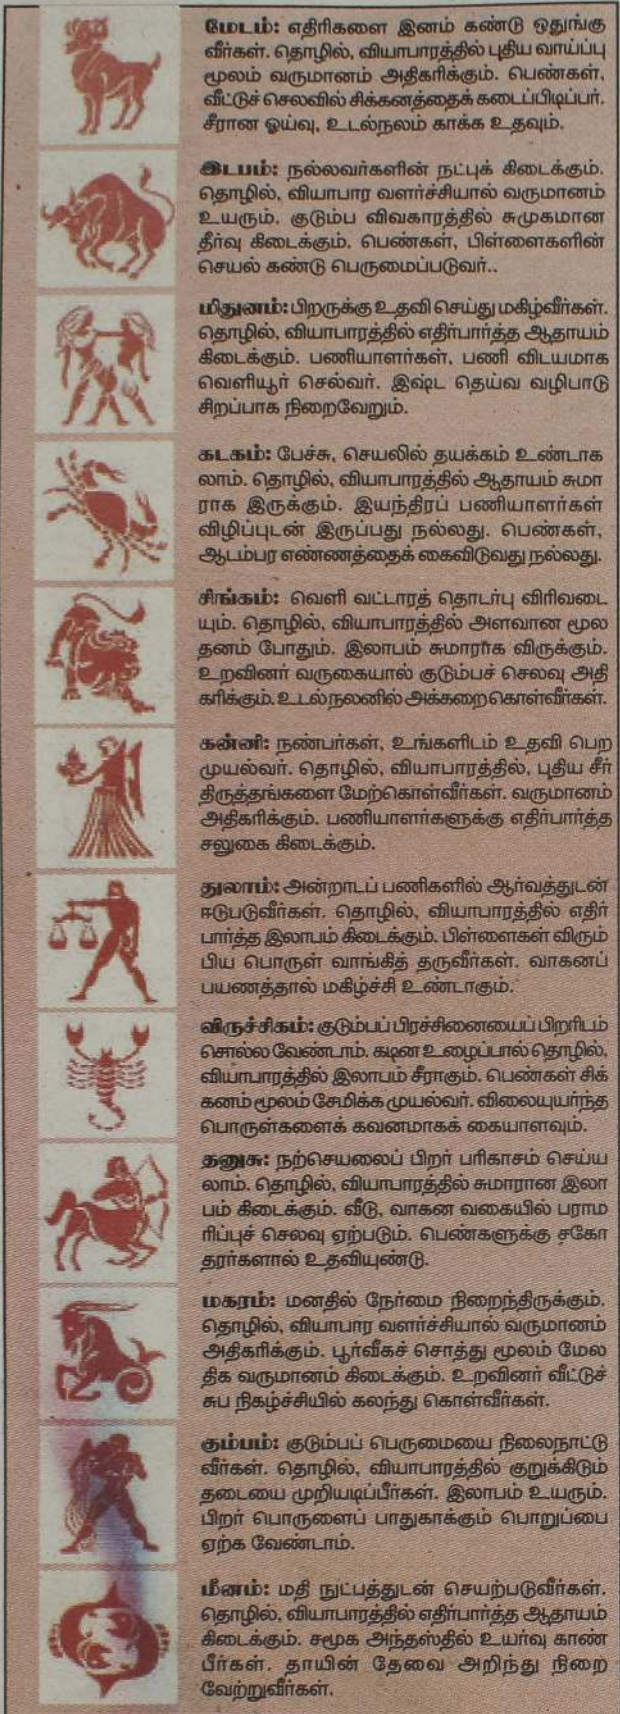 மேடம்: எதிரிகளை இனம் கண்டு ஒதுங்கு
வீர்கள். தொழில், வியாபாரத்தில் புதிய வாய்ப்பு
மூலம் வருமானம் அதிகரிக்கும். பெண்கள்,
வீட்டுச் செலவில் சிக்கனத்தைக் கடைப்பிடிப்பர்.
சீரான ஓய்வு, உடல்நலம் காக்க உதவும்.
இடபம்: நல்லவர்களின் நட்புக் கிடைக்கும்.
தொழில், வியாபார வளர்ச்சியால் வருமானம்
உயரும். குடும்ப விவகாரத்தில் சுமுகமான
தீர்வு கிடைக்கும். பெண்கள், பிள்ளைகளின்
செயல் கண்டு பெருமைப்படுவர்..
மிதுனம்: பிறருக்கு உதவி செய்து மகிழ்வீர்கள்.
தொழில், வியாபாரத்தில் எதிர்பார்த்த ஆதாயம்
கிடைக்கும். பணியாளர்கள், பணி விடயமாக
வெளியூர் செல்வர். இஷ்ட தெய்வ வழிபாடு
சிறப்பாக நிறைவேறும்.
கடகம்: பேச்சு, செயலில் தயக்கம் உண்டாக
லாம். தொழில், வியாபாரத்தில் ஆதாயம் சுமா
ராக இருக்கும். இயந்திரப் பணியாளர்கள்
விழிப்புடன் இருப்பது நல்லது. பெண்கள்,
ஆடம்பர எண்ணத்தைக் கைவிடுவது நல்லது.
சிங்கம்: வெளி வட்டாரத் தொடர்பு விரிவடை
யும். தொழில், வியாபாரத்தில் அளவான மூல
தனம் போதும். இலாபம் சுமாராக விருக்கும்.
உறவினர் வருகையால் குடும்பச் செலவு அதி
கரிக்கும். உடல் நலனில் அக்கறை கொள்வீர்கள்.
கன்னி: நண்பர்கள், உங்களிடம் உதவி பெற
முயல்வர். தொழில், வியாபாரத்தில், புதிய சீர்
திருத்தங்களை மேற்கொள்வீர்கள். வருமானம்
அதிகரிக்கும். பணியாளர்களுக்கு எதிர்பார்த்த
சலுகை கிடைக்கும்.
துலாம்: அன்றாடப் பணிகளில் ஆர்வத்துடன்
ஈடுபடுவீர்கள். தொழில், வியாபாரத்தில் எதிர்
பார்த்த இலாபம் கிடைக்கும். பிள்ளைகள் விரும்
பிய பொருள் வாங்கித் தருவீர்கள். வாகனப்
பயணத்தால் மகிழ்ச்சி உண்டாகும்.
விருச்சிகம்: குடும்பப் பிரச்சினையைப் பிறரிடம்
சொல்ல வேண்டாம். கடின உழைப்பால் தொழில்,
வியாபாரத்தில் இலாபம் சீராகும். பெண்கள் சிக்
கனம் மூலம் சேமிக்க முயல்வர். விலையுயர்ந்த
பொருள்களைக் கவனமாகக் கையாளவும்.
தனுசு: நற்செயலைப் பிறர் பரிகாசம் செய்ய
லாம். தொழில், வியாபாரத்தில் சுமாரான இலா
பம் கிடைக்கும். வீடு, வாகன வகையில் பராம
ரிப்புச் செலவு ஏற்படும். பெண்களுக்கு சகோ
தரர்களால் உதவியுண்டு.
மகரம்: மனதில் நேர்மை நிறைந்திருக்கும்.
தொழில், வியாபார வளர்ச்சியால் வருமானம்
அதிகரிக்கும். பூர்வீகச் சொத்து மூலம் மேல
திக வருமானம் கிடைக்கும். உறவினர் வீட்டுச்
சுப நிகழ்ச்சியில் கலந்து கொள்வீர்கள்.
கும்பம்: குடும்பப் பெருமையை நிலைநாட்டு
வீர்கள். தொழில், வியாபாரத்தில் குறுக்கிடும்
தடையை முறியடிப்பீர்கள். இலாபம் உயரும்.
பிறர் பொருளைப் பாதுகாக்கும் பொறுப்பை
ஏற்க வேண்டாம்.
மீனம்: மதி நுட்பத்துடன் செயற்படுவீர்கள்.
தொழில், வியாபாரத்தில் எதிர்பார்த்த ஆதாயம்
கிடைக்கும். சமூக அந்தஸ்தில் உயர்வு காண்
பீர்கள். தாயின் தேவை அறிந்து நிறை
வேற்றுவீர்கள்.